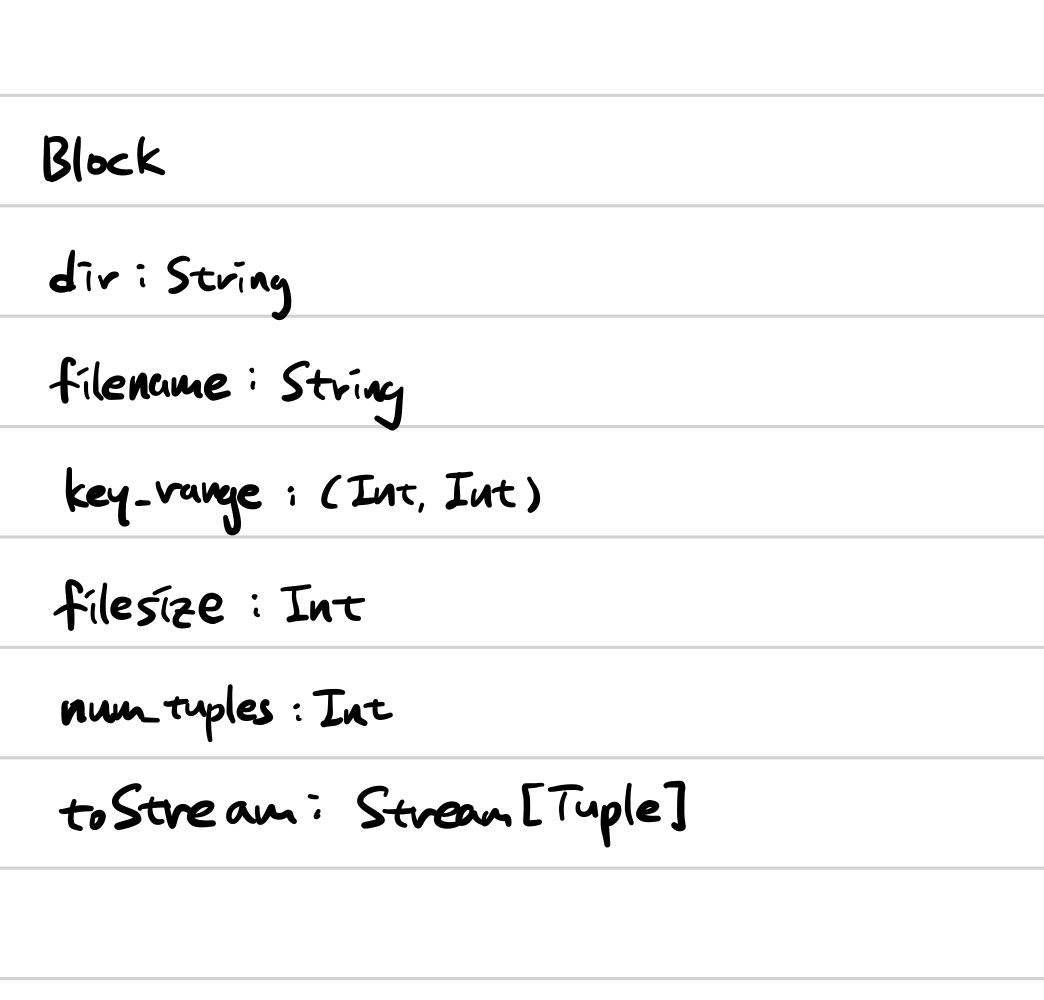 Block
dir : String
filename : String
key_range : (Int, Int)
filesize : Int
num_tuples : Int
toStream : Stream[Tuple]